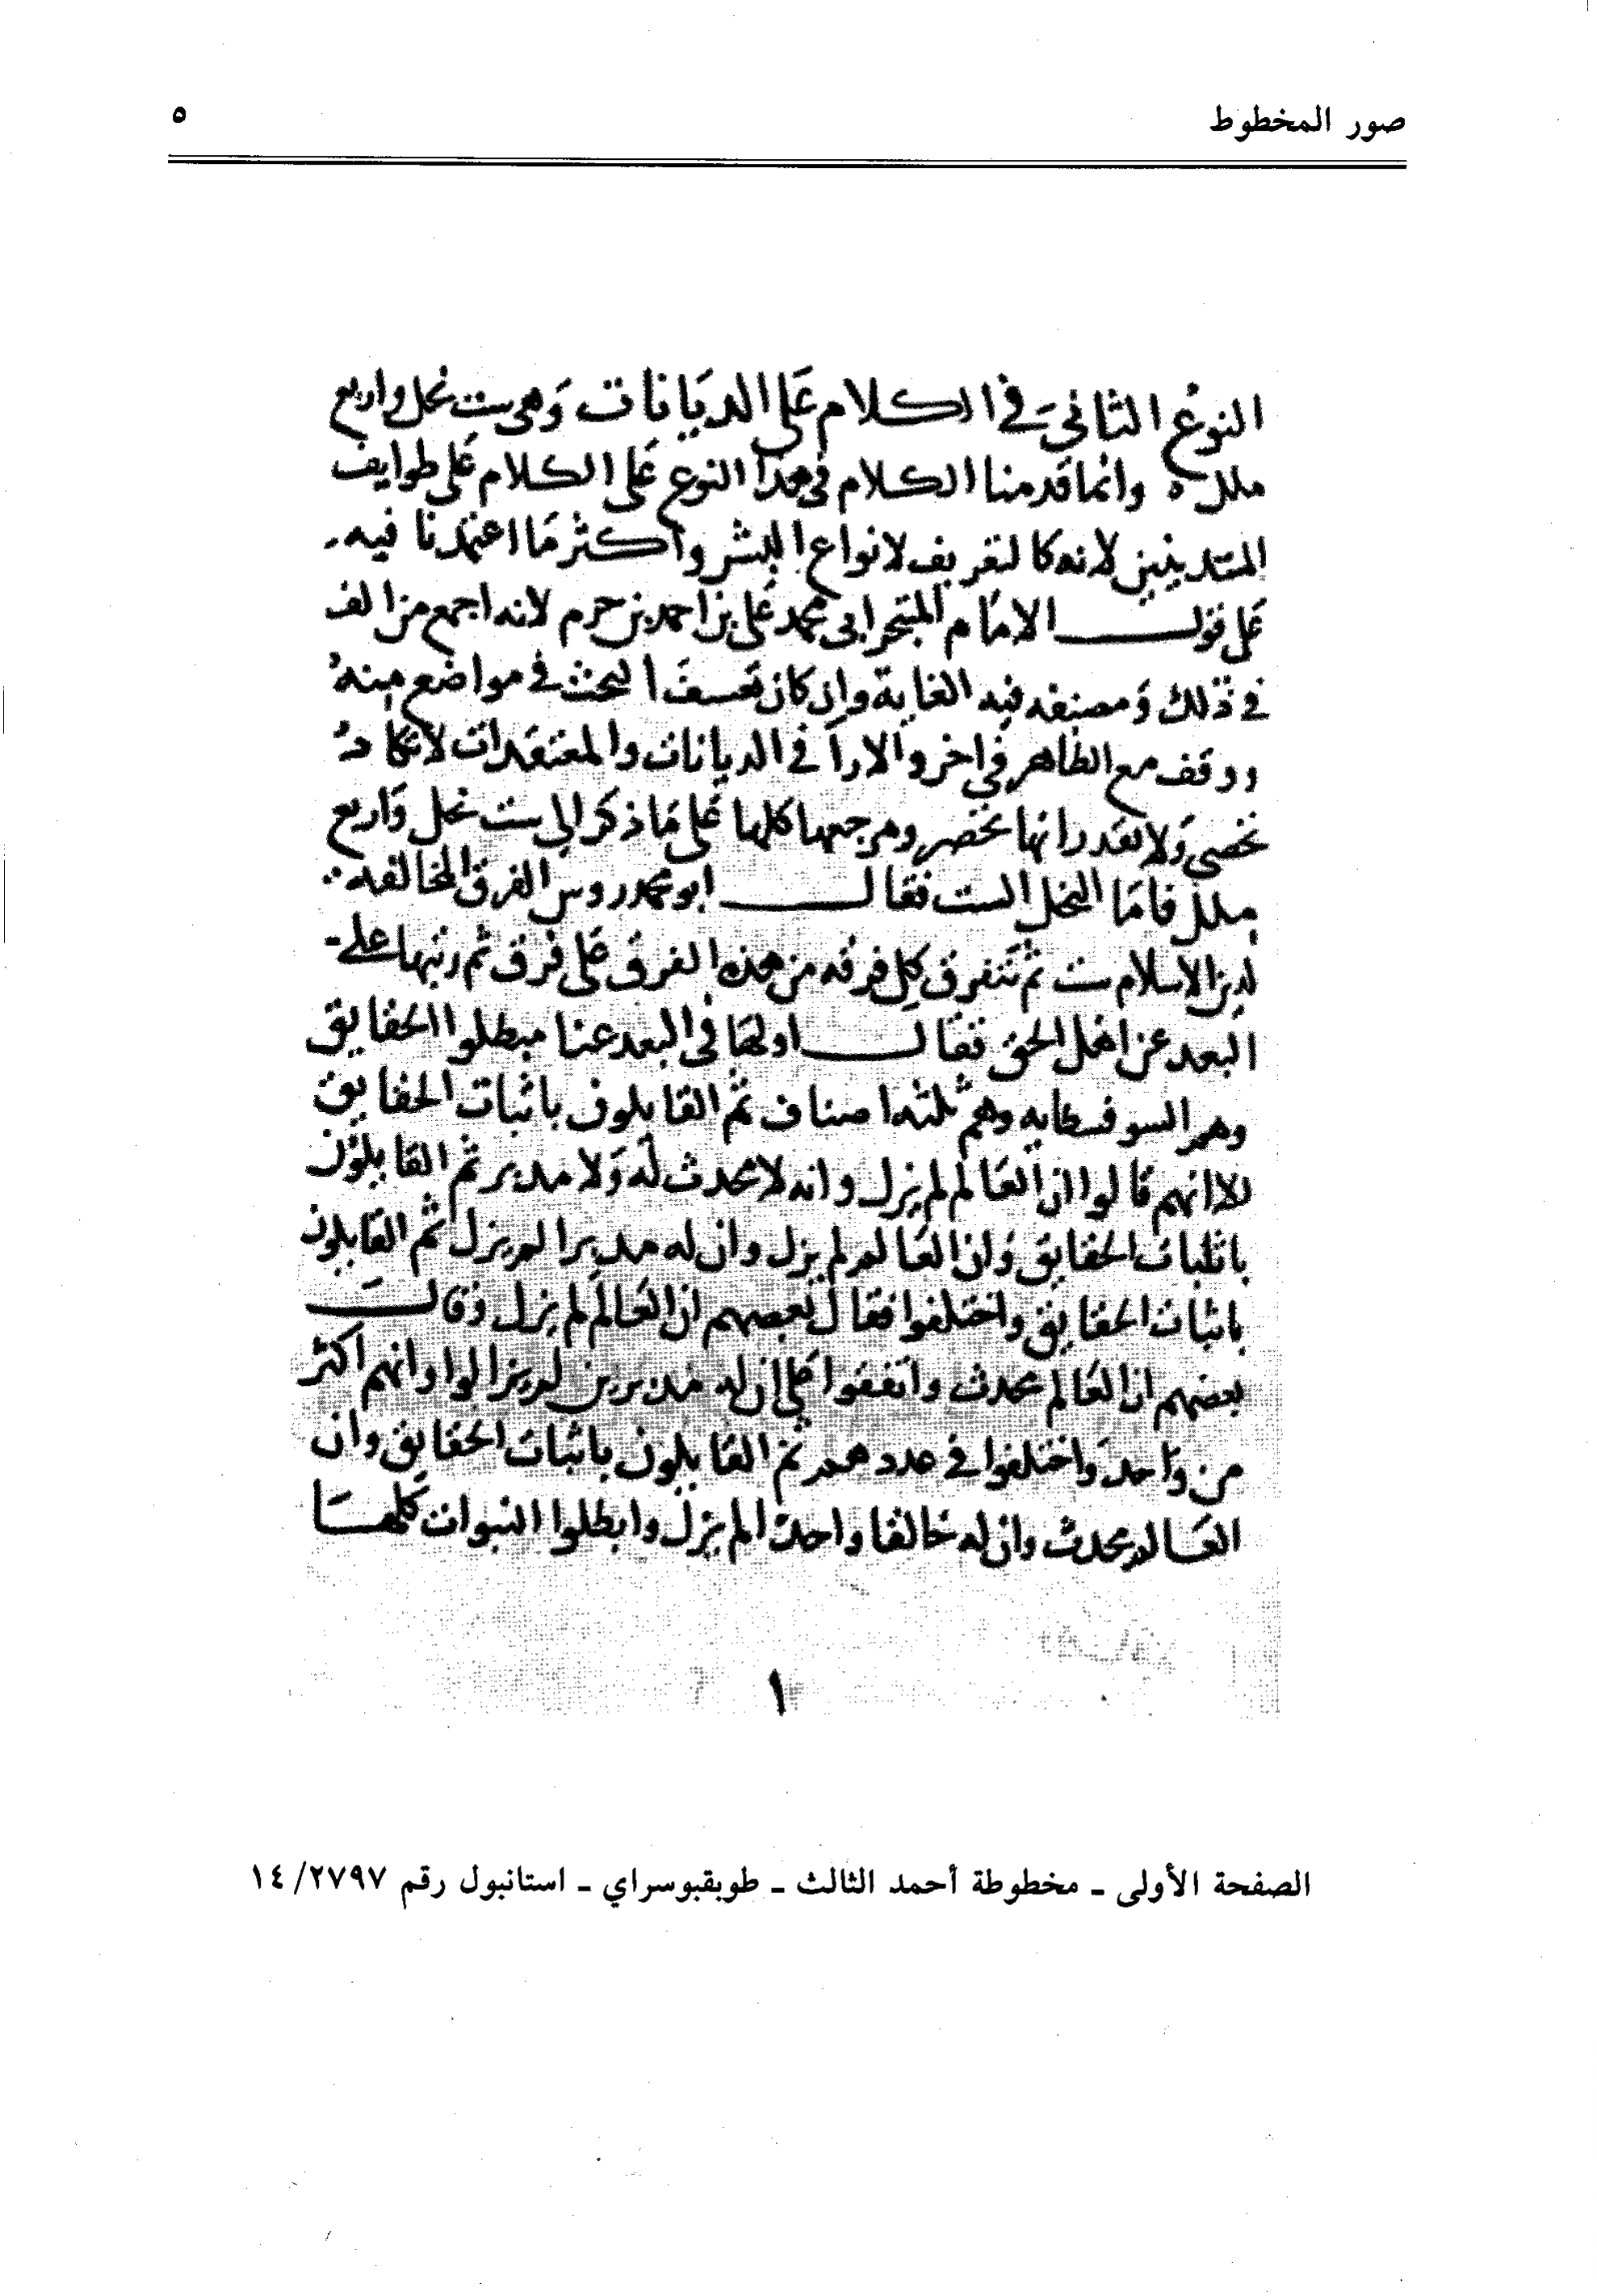 صور المخطوط
٥
النوع الثاني في الكلام على الديانات وهى ست نحل واربع
ملل ه وانما قدمنا الكلام في هذا النوع على الكلام على طوايف
المتدينين لانه كالتعريف لانواع البشر واكثر ما اعتمدنا فيه
على قول الامام المتبحر ابى محمد على بن احمد بن حزم لانه اجمع من الف
في ذلك ومصنفه فيه الغاية وان كان تعسف البحث في مواضع منه
ووقف مع الظاهر في اخر والارآ في الديانات والمعتقدات لا تكاد
تحصى ولا تقدر انها تحصر ومرجعها كلها على ما ذكر الى ست نحل واربع
ملل فاما النحل الست فقال ابو محمد روس الفرق المخالفه
لدين الاسلام ست ثم تتفرق كل فرقه من هذه الفرق على فرق ثم رتبها على
البعد عن اهل الحق فقال اولها في البعد عنا مبطلوا الحقايق
وهم السوفسطايه وهم ثلثه اصناف ثم القايلون باثبات الحقايق
الا انهم قالوا ان العالم لم يزل وانه لا محدث له ولا مدبر ثم القايلون
باثبات الحقايق وان العالم لم يزل وان له مدبرا لم يزل ثم القايلون
باثبات الحقايق واختلفوا فقال بعضهم ان العالم لم يزل وقال
بعضهم ان العالم محدث واتفقوا على ان له مدبرين لم يزالوا وانهم اكثر
من واحد واختلفوا في عددهم ثم القايلون باثبات الحقايق وان
العالم محدث وان له خالقا واحدا لم يزل وابطلوا النبوات كلها
١
الصفحة الأولى ـ مخطوطة أحمد الثالث ـ طوبقبوسراي ـ استانبول رقم ١٤/٢٧٩٧